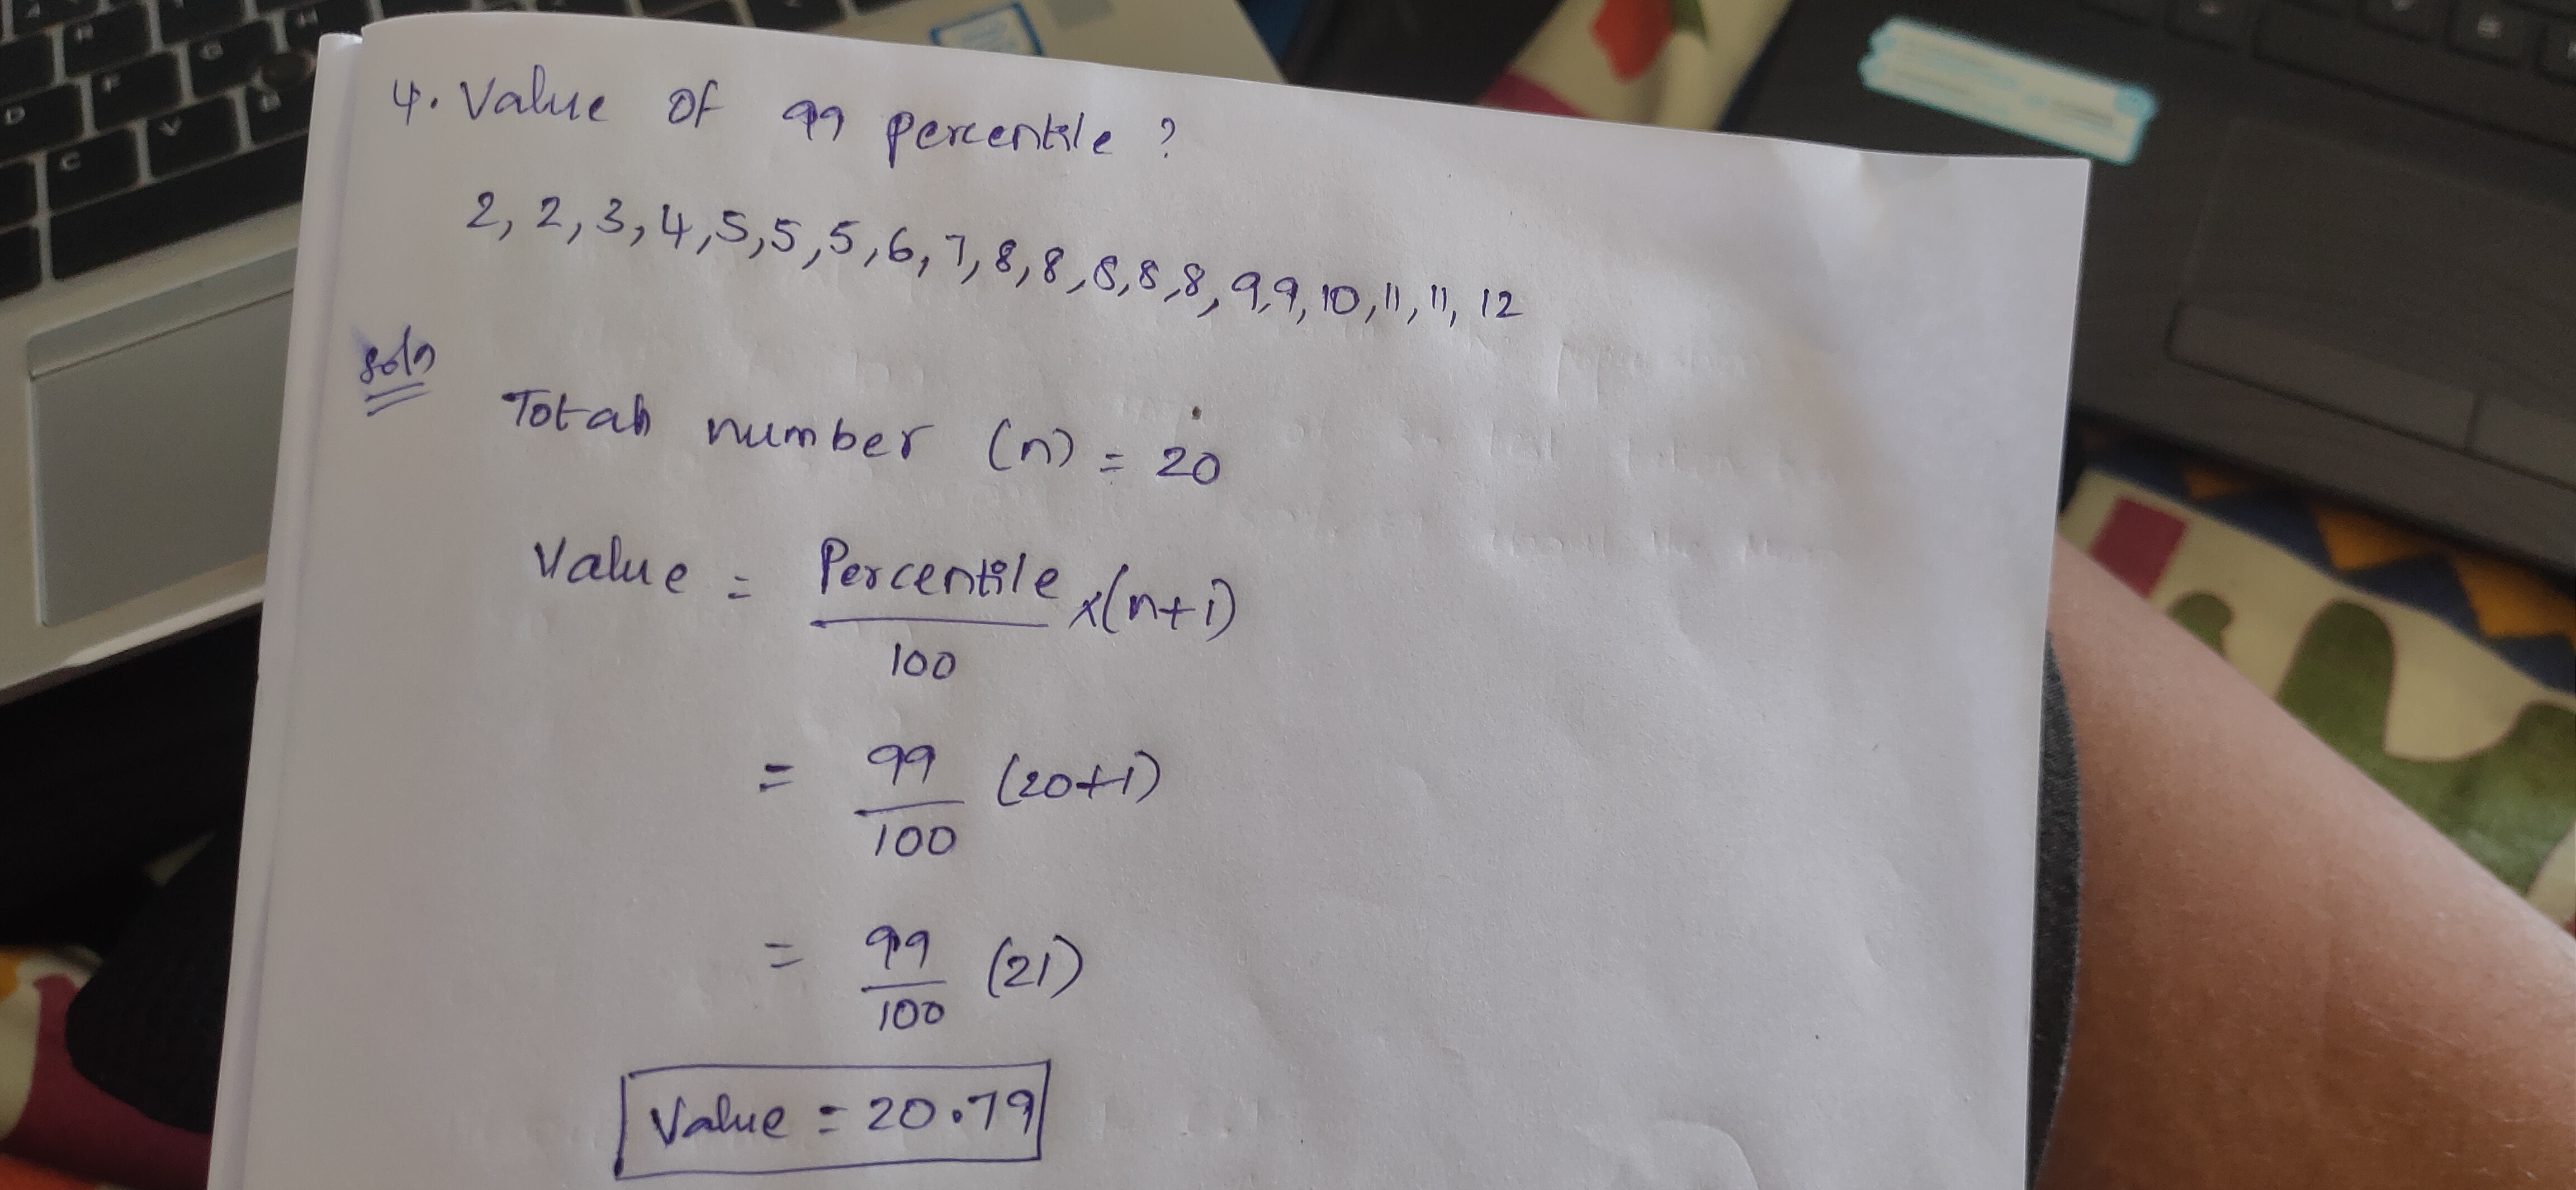 4. Value of 99 percentile ?
2, 2, 3, 4, 5, 5, 5, 6, 7, 8, 8, 8, 8, 8, 9, 9, 10, 11, 11, 12
Soln
Total number (n) = 20
Value = Percentile/100 x(n+1)
= 99/100 (20+1)
= 99/100 (21)
Value = 20.79